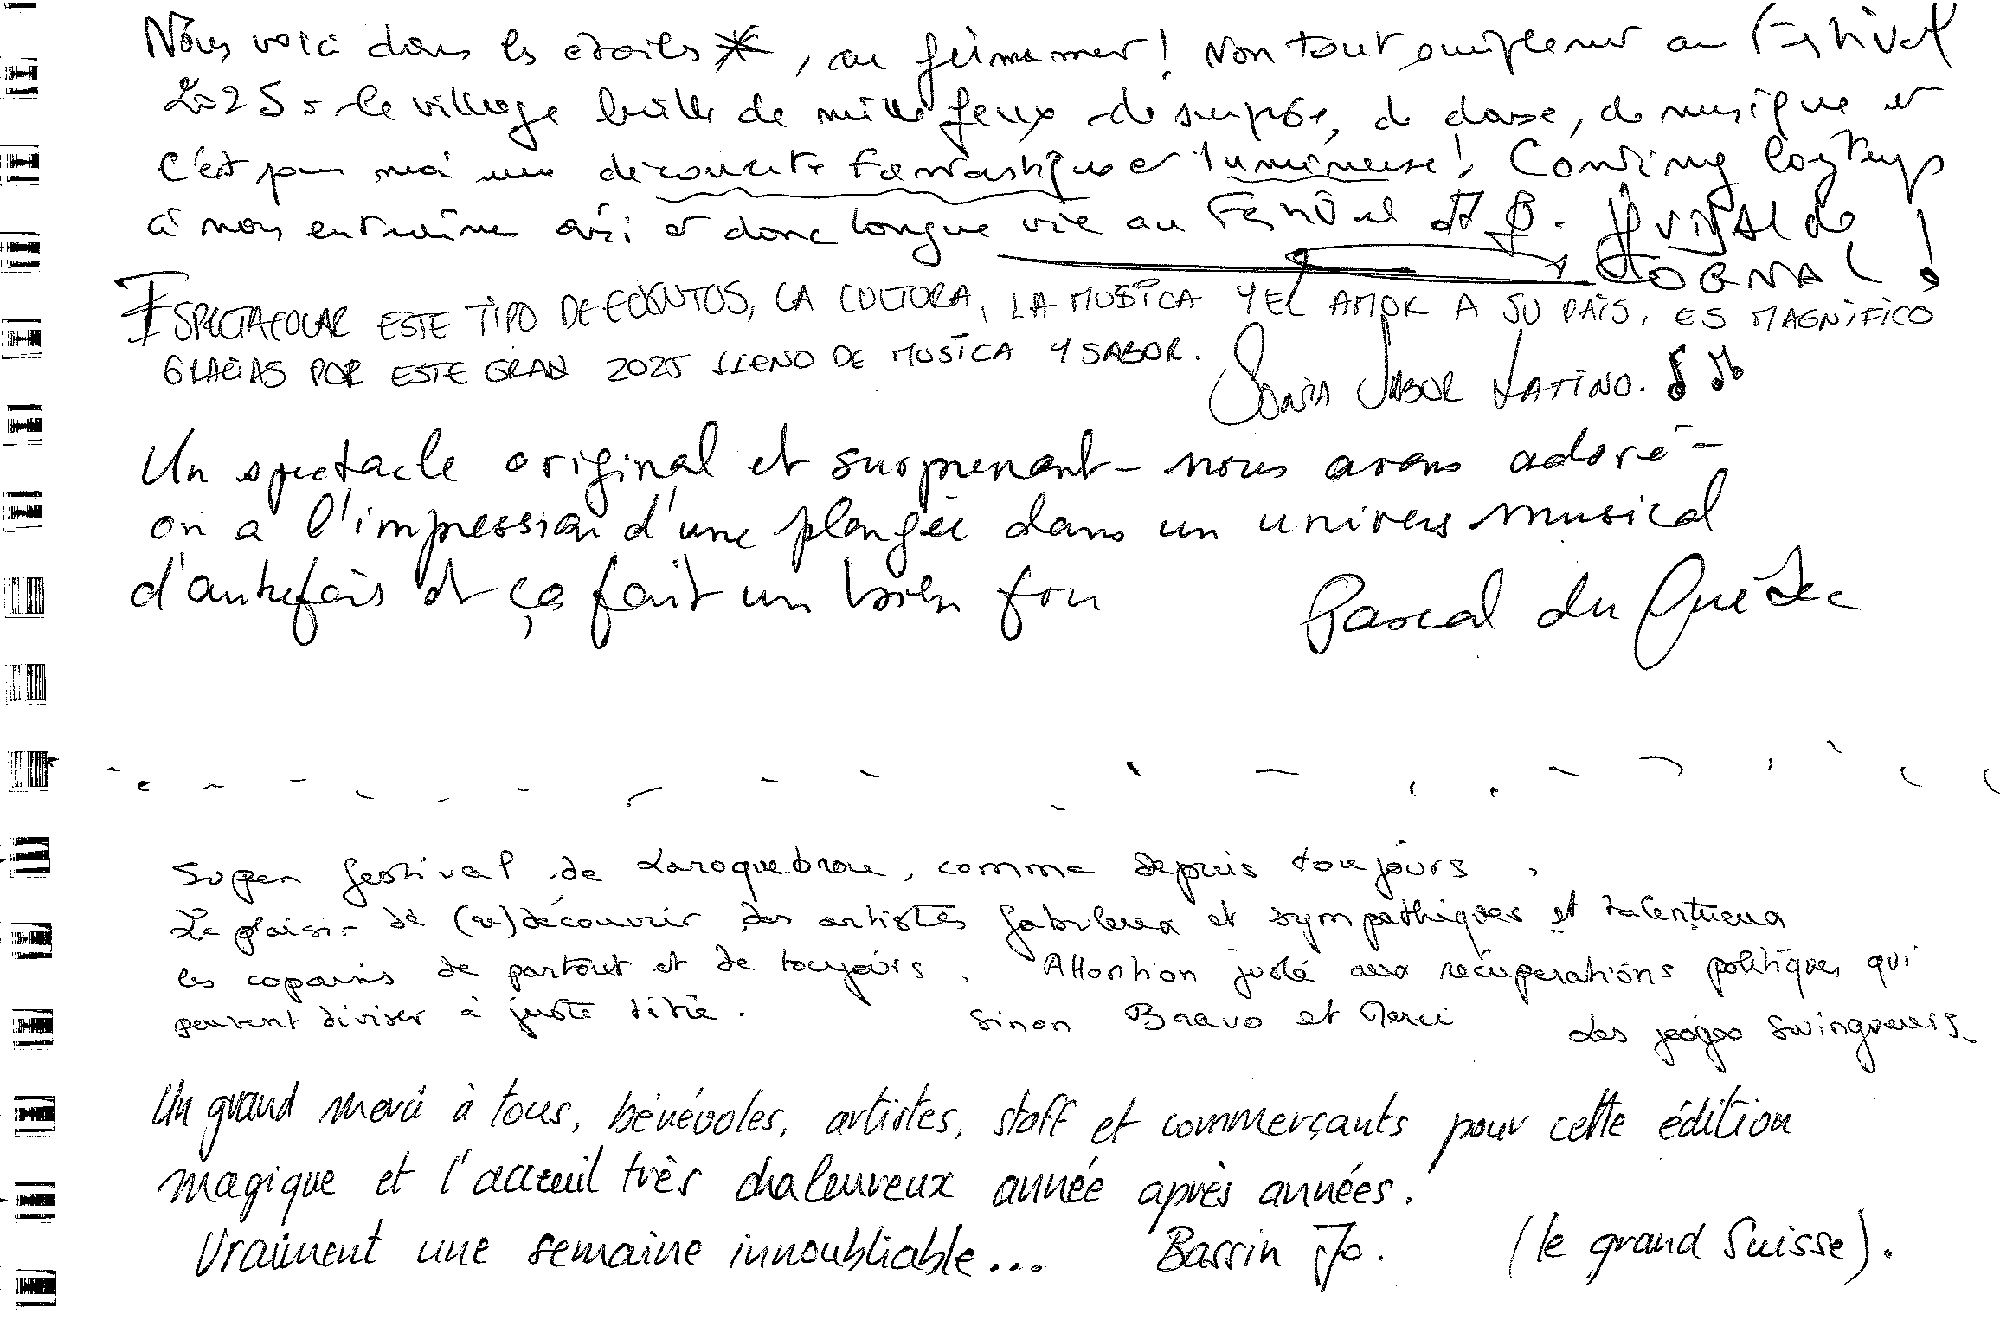 Nous voici dans les étoiles, au firmament ! Non tout simplement au Festival
2025. Le village brille de mille feux de surprise, de danse, de musique et
c'est pour moi une découverte fantastique et lumineuse !
à nous entraîner ainsi et donc longue vie au Festival et
ESPECTACULAR ESTE TIPO DE EVENTOS, LA CULTURA, LA MUSICA Y EL AMOR A SU PAÍS, ES MAGNÍFICO
GRACIAS POR ESTE GRAN 2025 LLENO DE MUSICA Y SABOR.
SONIA SABOR LATINO.
Un spectacle original et surprenant - nous avons adoré -
on a l'impression d'une plongée dans un univers musical
d'autrefois et ça fait un bien fou
Pascal du Québec
Super festival de Laroquebrou, comme depuis toujours.
Le plaisir de (re)découvrir des artistes fabuleux et sympathiques et talentueux
les copains de partout et de toujours. Attention juste aux récupérations politiques qui
peuvent diviser à juste titre. Sinon Bravo et Merci Les swingueurs.
Un grand merci à tous, bénévoles, artistes, staff et commerçants pour cette édition
magique et l'acceuil très chaleureux année après années.
Vraiment une semaine innoubliable... Bassin Jo. (le grand Suisse).